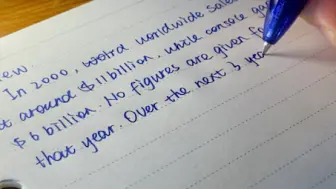 ew.
In 2000, world worldwide sales
at around $11 billion, while console ga
$6 billion. No figures are given fo
that year. Over the next 3 yea